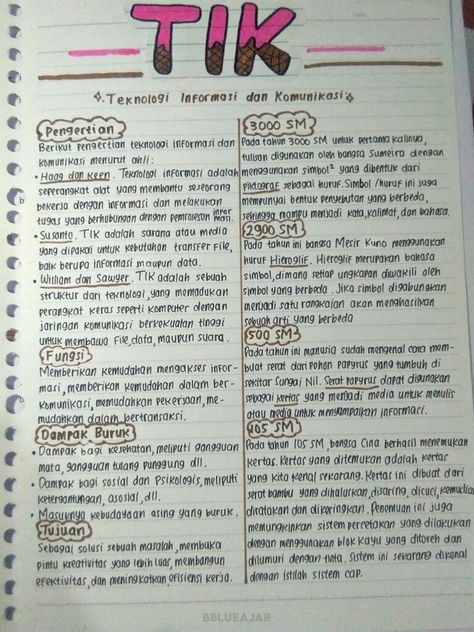 TIK
Teknologi Informasi dan Komunikasi
Pengertian
Berikut pengertian teknologi informasi dan
komunikasi menurut ahli:
• Haag dan Keen. Teknologi informasi adalah
seperangkat alat yang membantu seseorang
bekerja dengan informasi dan melakukan
tugas yang berhubungan dengan pemrosesan informasi.
• Susanto. TIK adalah sarana atau media
yang dipakai untuk kebutuhan transfer File,
baik berupa informasi maupun data.
• William dan Sawyer. TIK adalah sebuah
struktur dari teknologi, yang memadukan
perangkat keras seperti komputer dengan
jaringan komunikasi berkekuatan tinggi
untuk membawa File, data, maupun suara.
Fungsi
Memberikan kemudahan mengakses infor-
masi, memberikan kemudahan dalam ber-
komunikasi, memudahkan pekerjaan, me-
mudahkan dalam bertransaksi.
Dampak Buruk
• Dampak bagi kesehatan, meliputi gangguan
mata, gangguan tulang punggung dll.
• Dampak bagi sosial dan Psikologis, meliputi
ketergantungan, asosial, dll.
• Masuknya kebudayaan asing yang buruk.
Tujuan
Sebagai solusi sebuah masalah, membuka
pintu kreativitas yang lebih luas, membangun
efektivitas, dan meningkatkan efisiensi kerja.
3000 SM
Pada tahun 3000 SM untuk pertama kalinya,
tulisan digunakan oleh bangsa Sumeria dengan
menggunakan simbol² yang dibentuk dari
piktograf sebagai huruf. Simbol /huruf ini juga
mempunyai bentuk penyebutan yang berbeda,
sehingga mampu menjadi kata, kalimat, dan bahasa.
2900 SM
Pada tahun ini bangsa Mesir Kuno menggunakan
huruf Hieroglif. Hieroglif merupakan bahasa
simbol, dimana setiap ungkapan diwakili oleh
simbol yang berbeda. Jika simbol digabungkan
menjadi satu rangkaian akan menghasilkan
sebuah arti yang berbeda
500 SM
Pada tahun ini manusia sudah mengenal cara mem-
buat serat dari pohon papyrus yang tumbuh di
sekitar Sungai Nil. Serat papyrus dapat digunakan
sebagai kertas yang menjadi media untuk menulis
atau media untuk menyampaikan informasi.
105 SM
Pada tahun 105 SM, bangsa Cina berhasil menemukan
kertas. Kertas yang ditemukan adalah kertas
yang kita kenal sekarang. Kertas ini dibuat dari
serat bambu yang dihaluskan, disaring, dicuci, kemudian
diratakan dan dikeringkan. Penemuan ini juga
memungkinkan sistem percetakan yang dilakukan
dengan menggunakan blok kayu yang ditoreh dan
dilumuri dengan tinta. Sistem ini sekarang dikenal
dengan istilah sistem cap.
BBLUEAJAR